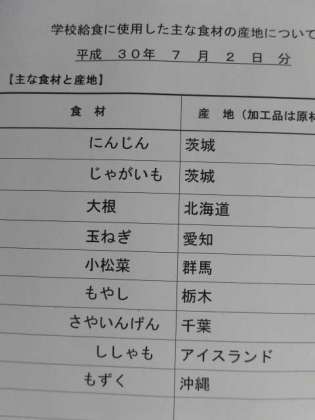 学校給食に使用した主な食材の産地につい
平成 30年 7 月 2 日 分
【主な食材と産地】
食 材 産 地（加工品は原材
にんじん 茨城
じゃがいも 茨城
大根 北海道
玉ねぎ 愛知
小松菜 群馬
もやし 栃木
さやいんげん 千葉
ししゃも アイスランド
もずく 沖縄